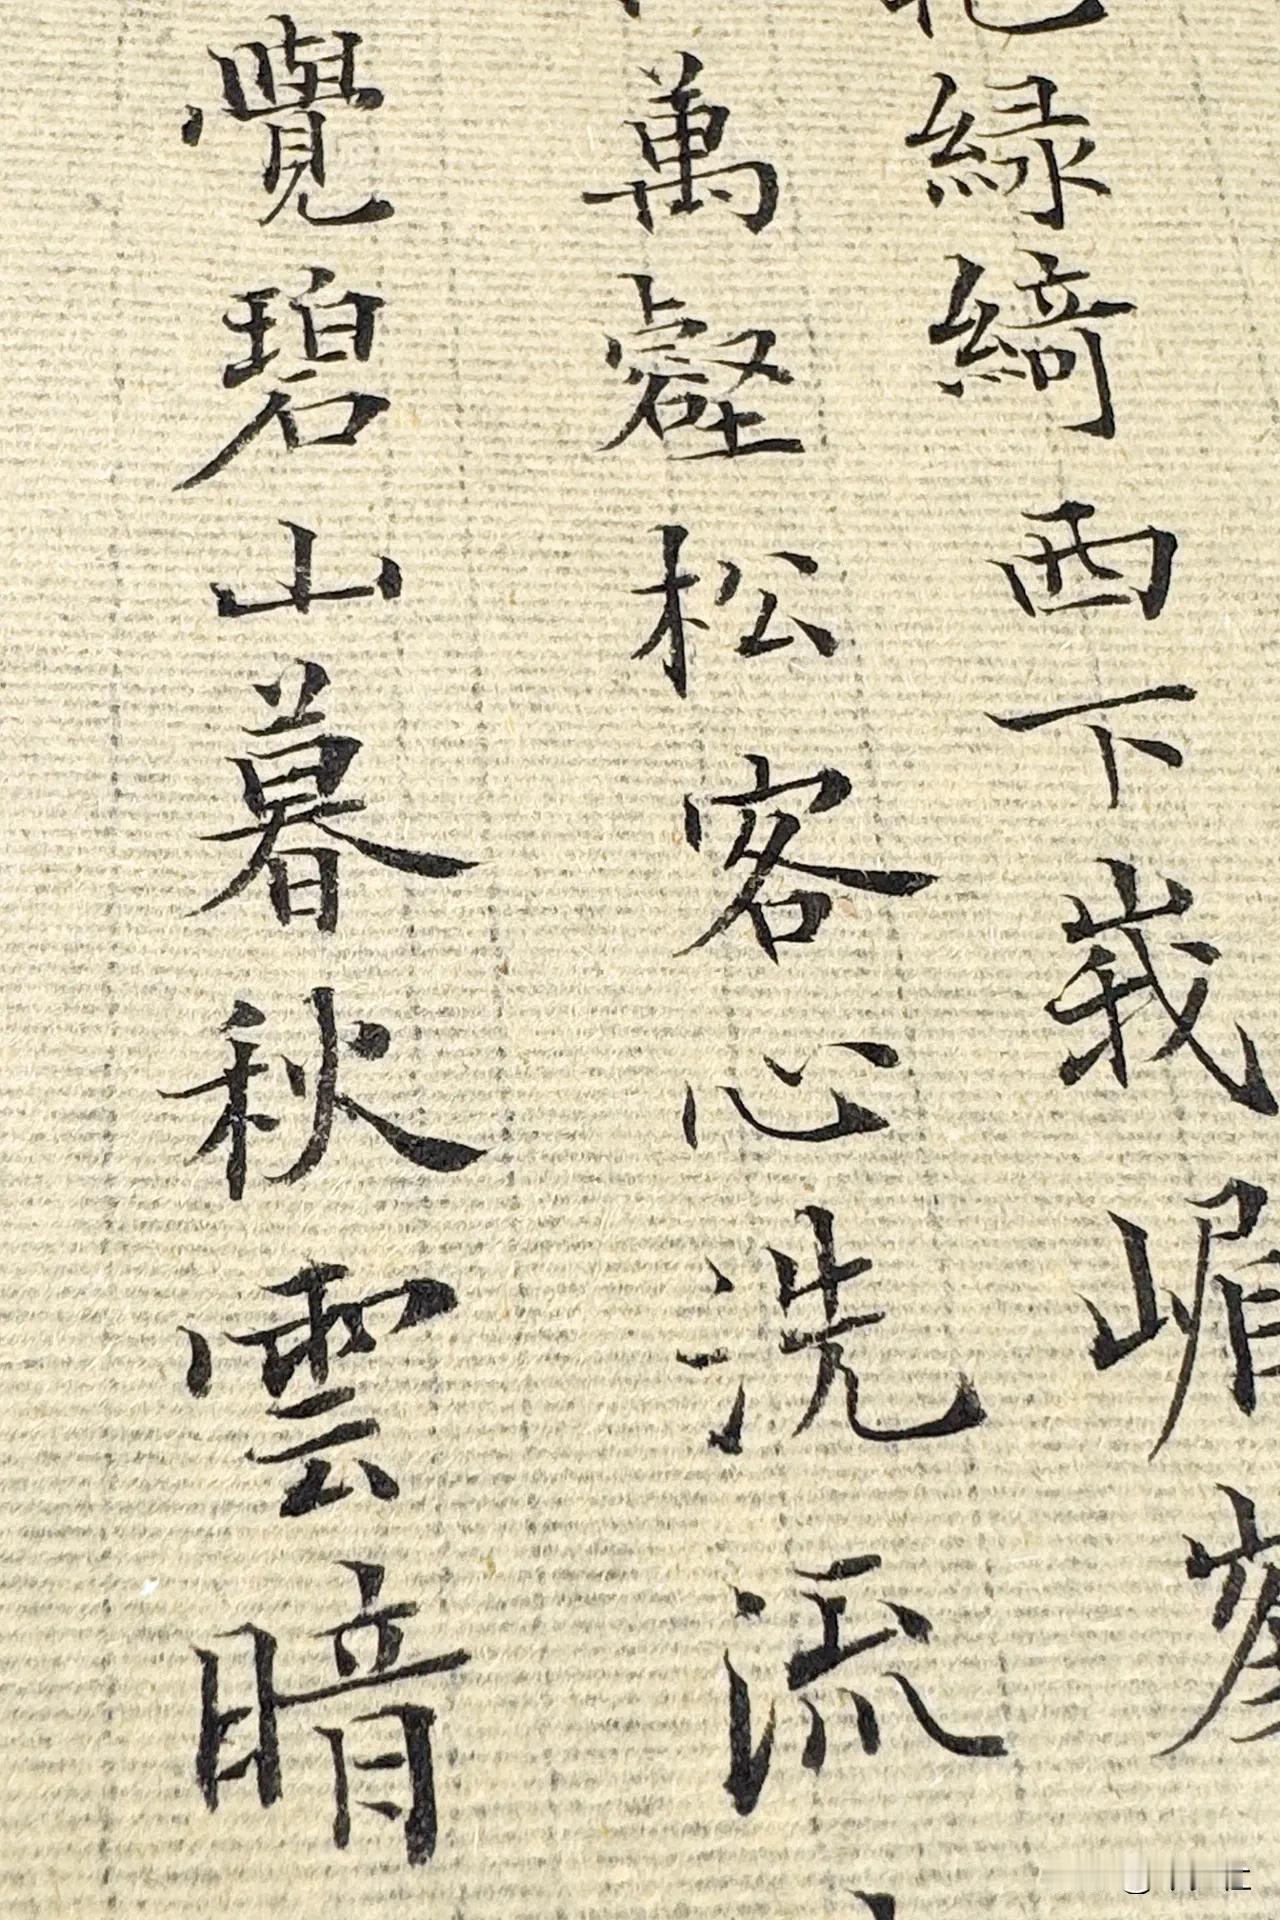 緑綺西下峩嵋
萬壑松客心洗流
覺碧山暮秋雲暗